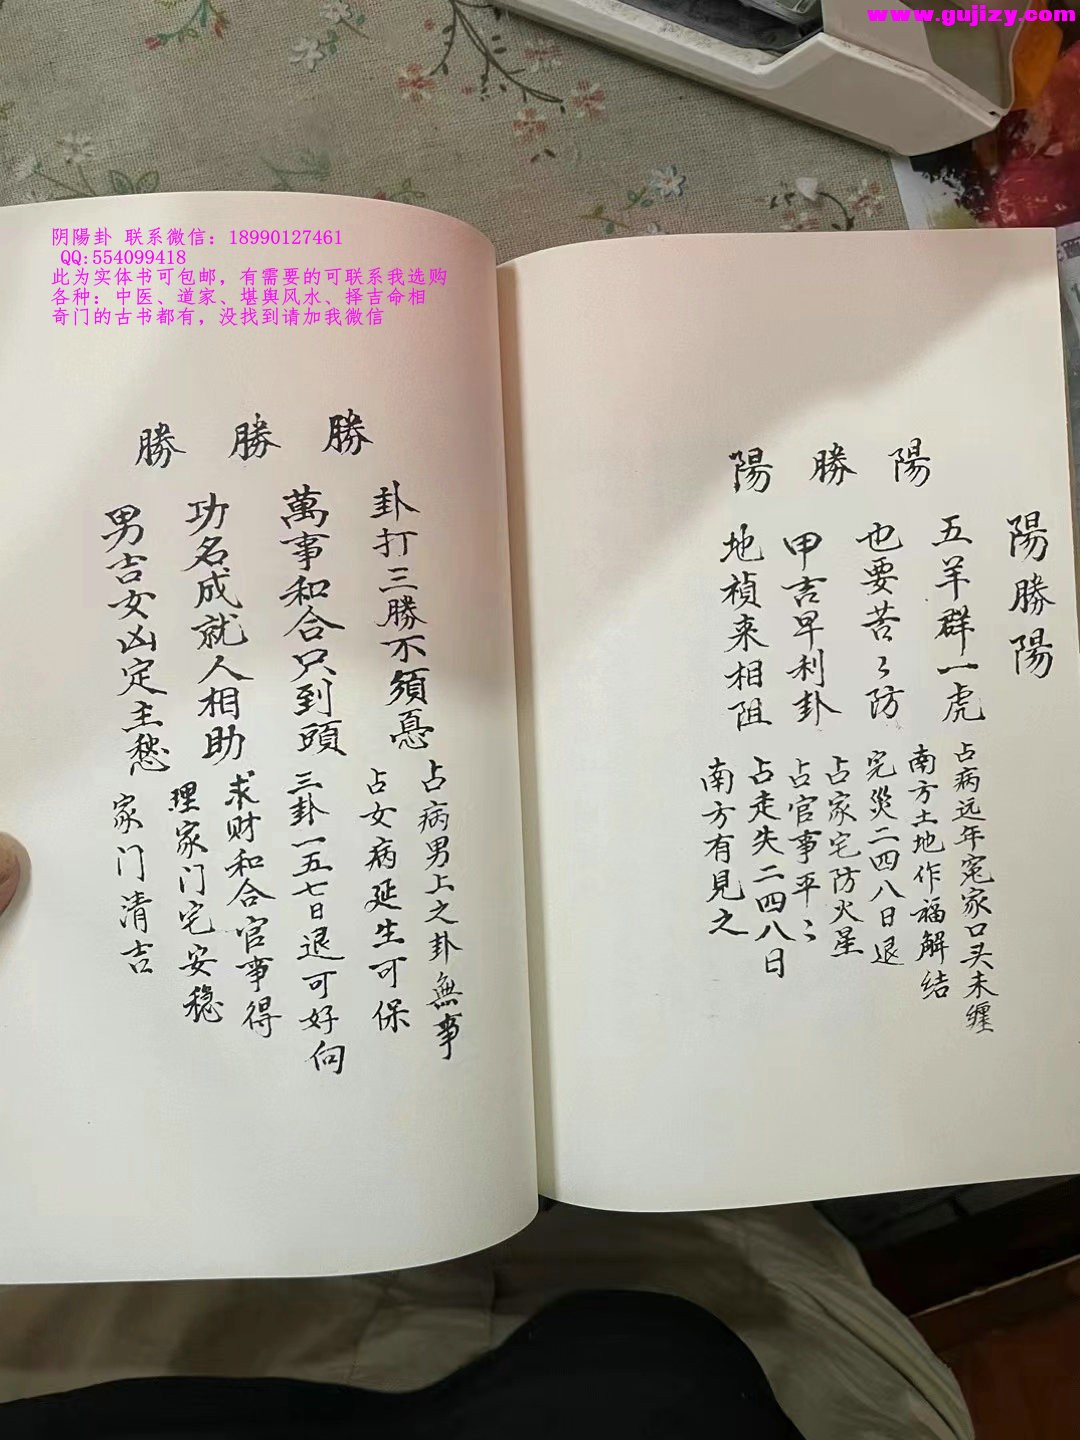 www.gujizy.com
阴陽卦 联系微信：18990127461
QQ:554099418
此为实体书可包邮，有需要的可联系我选购
各种：中医、道家、堪舆风水、择吉命相
奇门的古书都有，没找到请加我微信
陽勝陽
陽勝陽
五羊群一虎
也要苦〻防
甲吉早利卦
地禎来相阻
占病远年冤家口头未缠
南方土地作福解结
完災二四八日退
占家宅防火星
占官事平〻
占走失二四八日
南方有見之
勝勝勝
卦打三勝不須憂
萬事和合只到頭
功名成就人相助
男吉女凶定主愁
占病男上之卦無事
占女病延生可保
三卦一五七日退可好向
求财和合官事得
理家门宅安稳
家门清吉